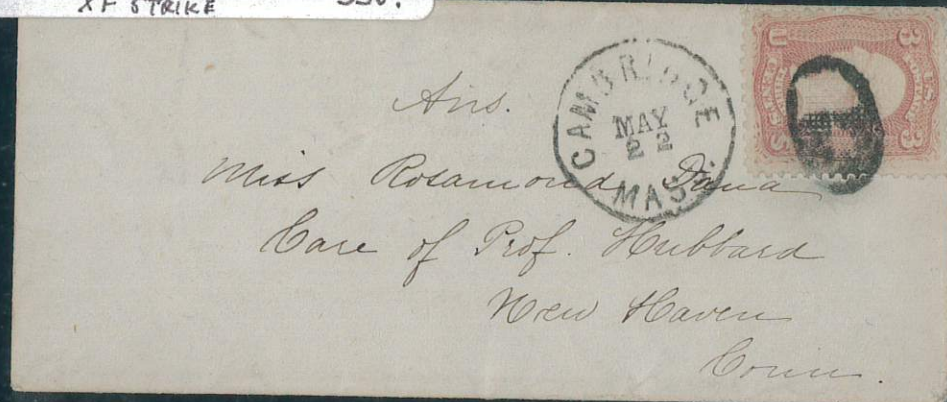 XF STRIKE 350.
Ans.
CAMBRIDGE
MAY
22
MASS.
U 3
3 S
Miss Rosamond Dana
Care of Prof. Hubbard
New Haven
Conn.